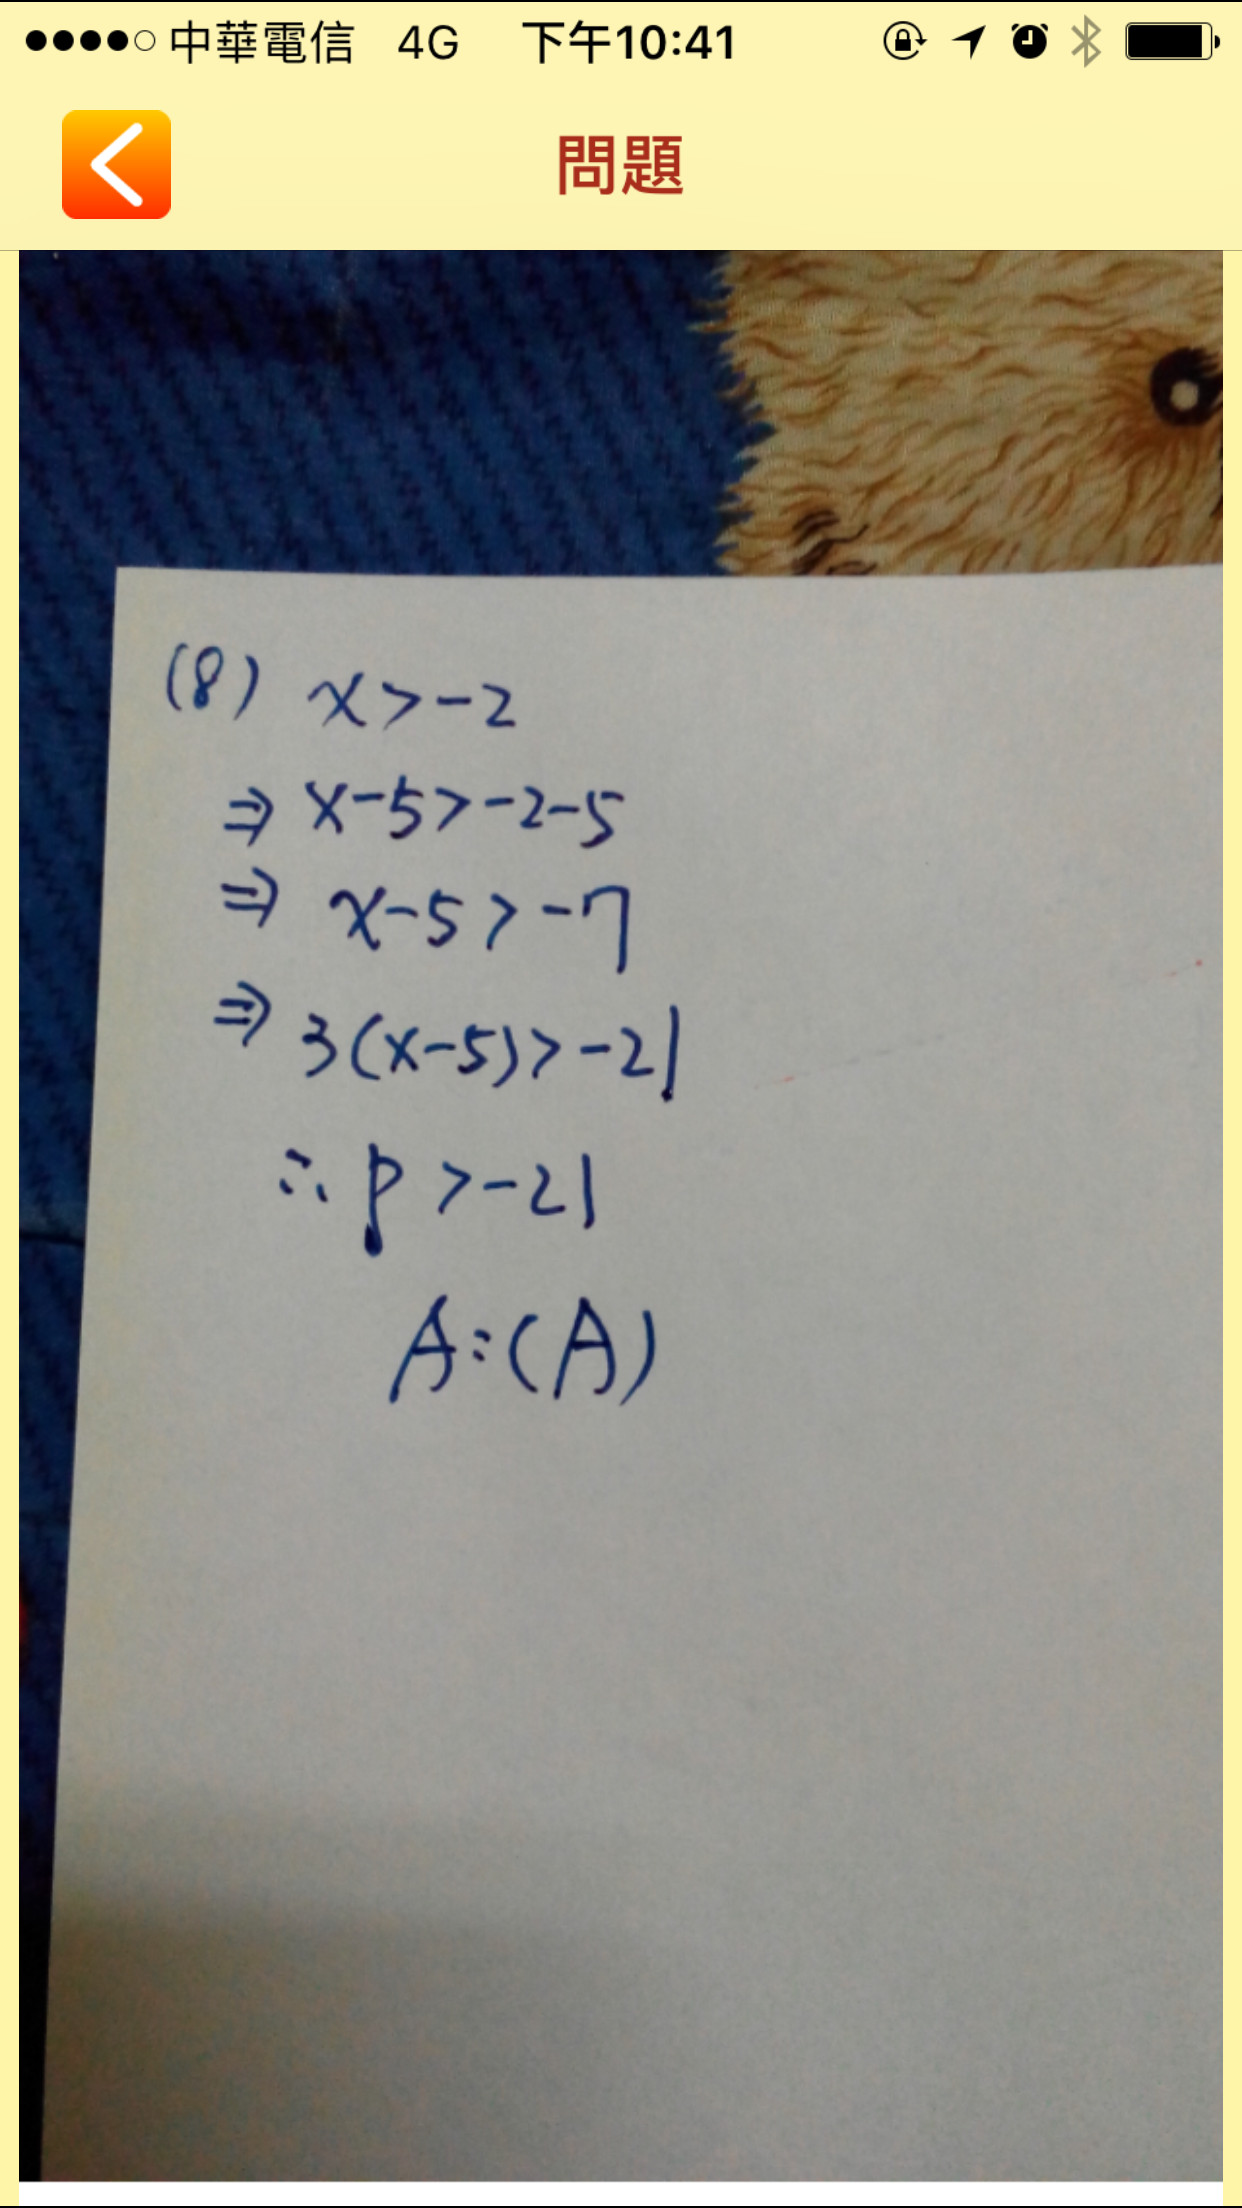 中華電信 4G 下午10:41
問題
(8) x>-2
⇒ x-5>-2-5
⇒ x-5>-7
⇒ 3(x-5)>-21
∴ p>-21
A:(A)